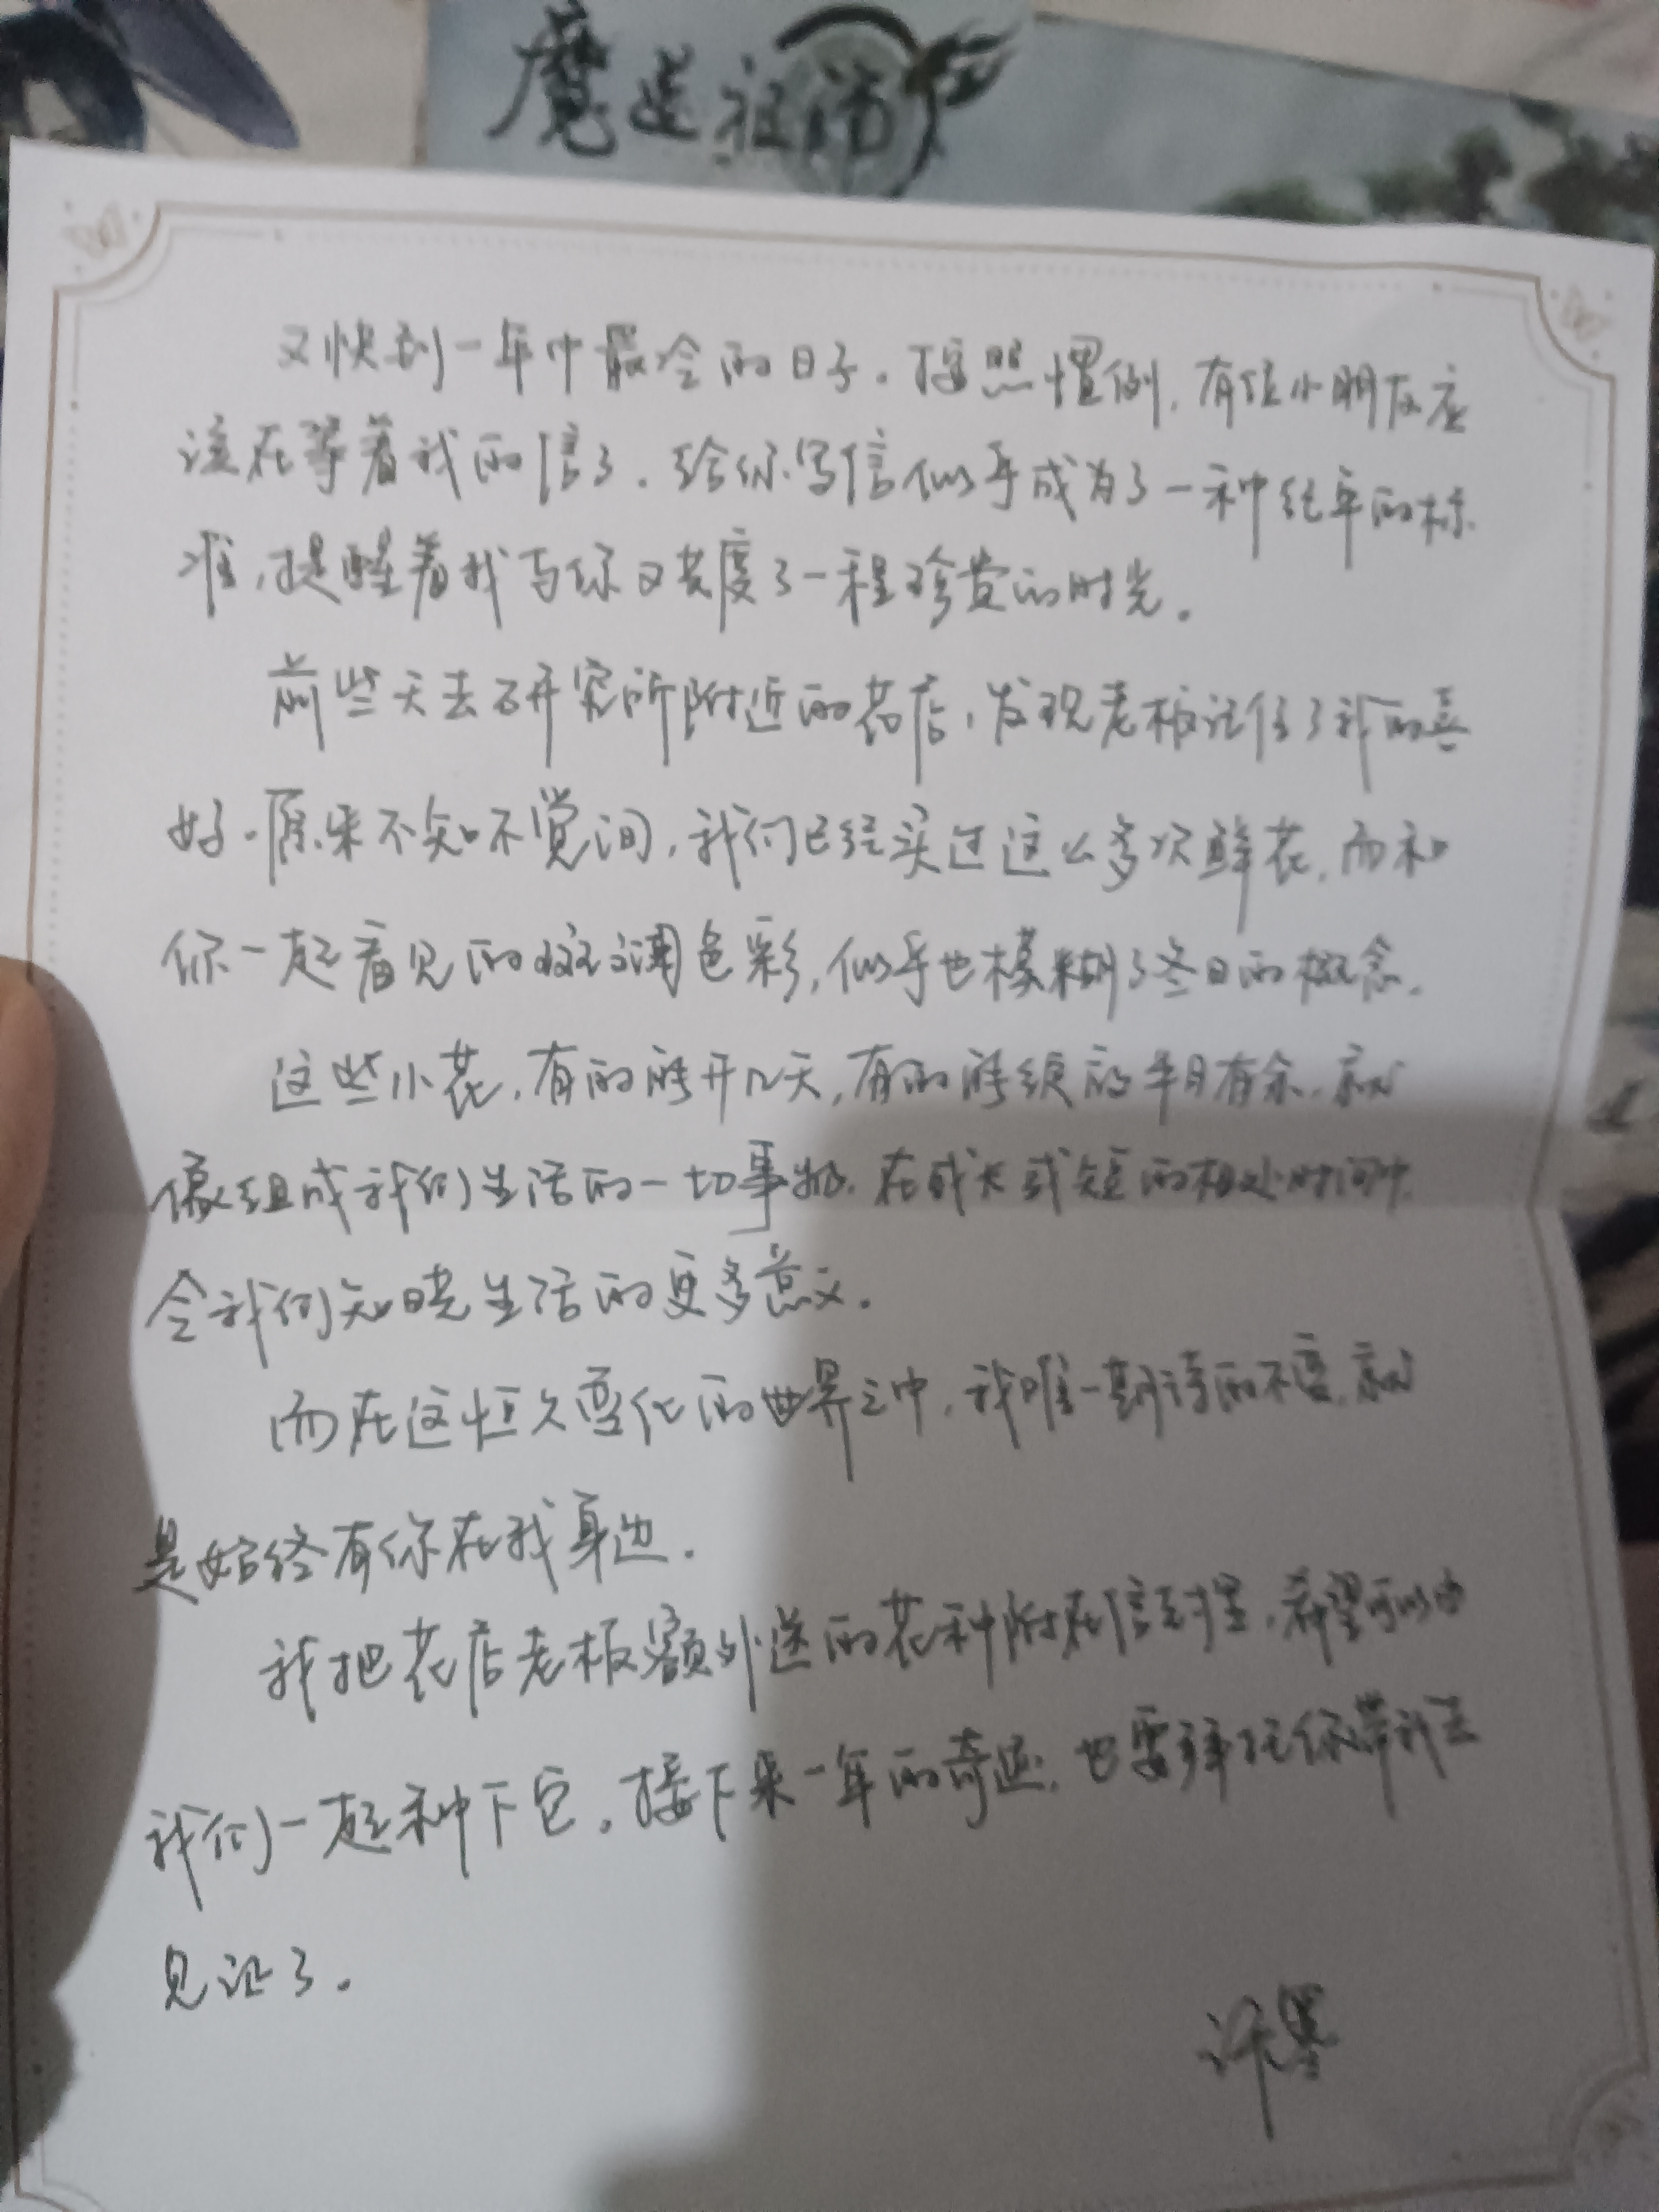 魔道祖师
又快到一年中最冷的日子。按照惯例,有位小朋友应
该在等着我的信了。给你写信似乎成为了一种经年的标
准,提醒着我与你又共度了一程珍贵的时光。
前些天去研究所附近的花店,发现老板记住了我的喜
好。原来不知不觉间,我们已经买过这么多次鲜花,而和
你一起看见的斑斓色彩,似乎也模糊了冬日的概念。
这些小花,有的能开几天,有的能绽放半月有余。就
像组成我们生活的一切事物,在或长或短的相处时间中
令我们知晓生活的更多意义。
而在这恒久变化的世界之中,我唯一期待的不变,就
是始终有你在我身边。
我把花店老板额外送的花种附在信封里,希望可以由
我们一起种下它。接下来一年的奇迹,也要拜托你带我去
见证了。
许墨